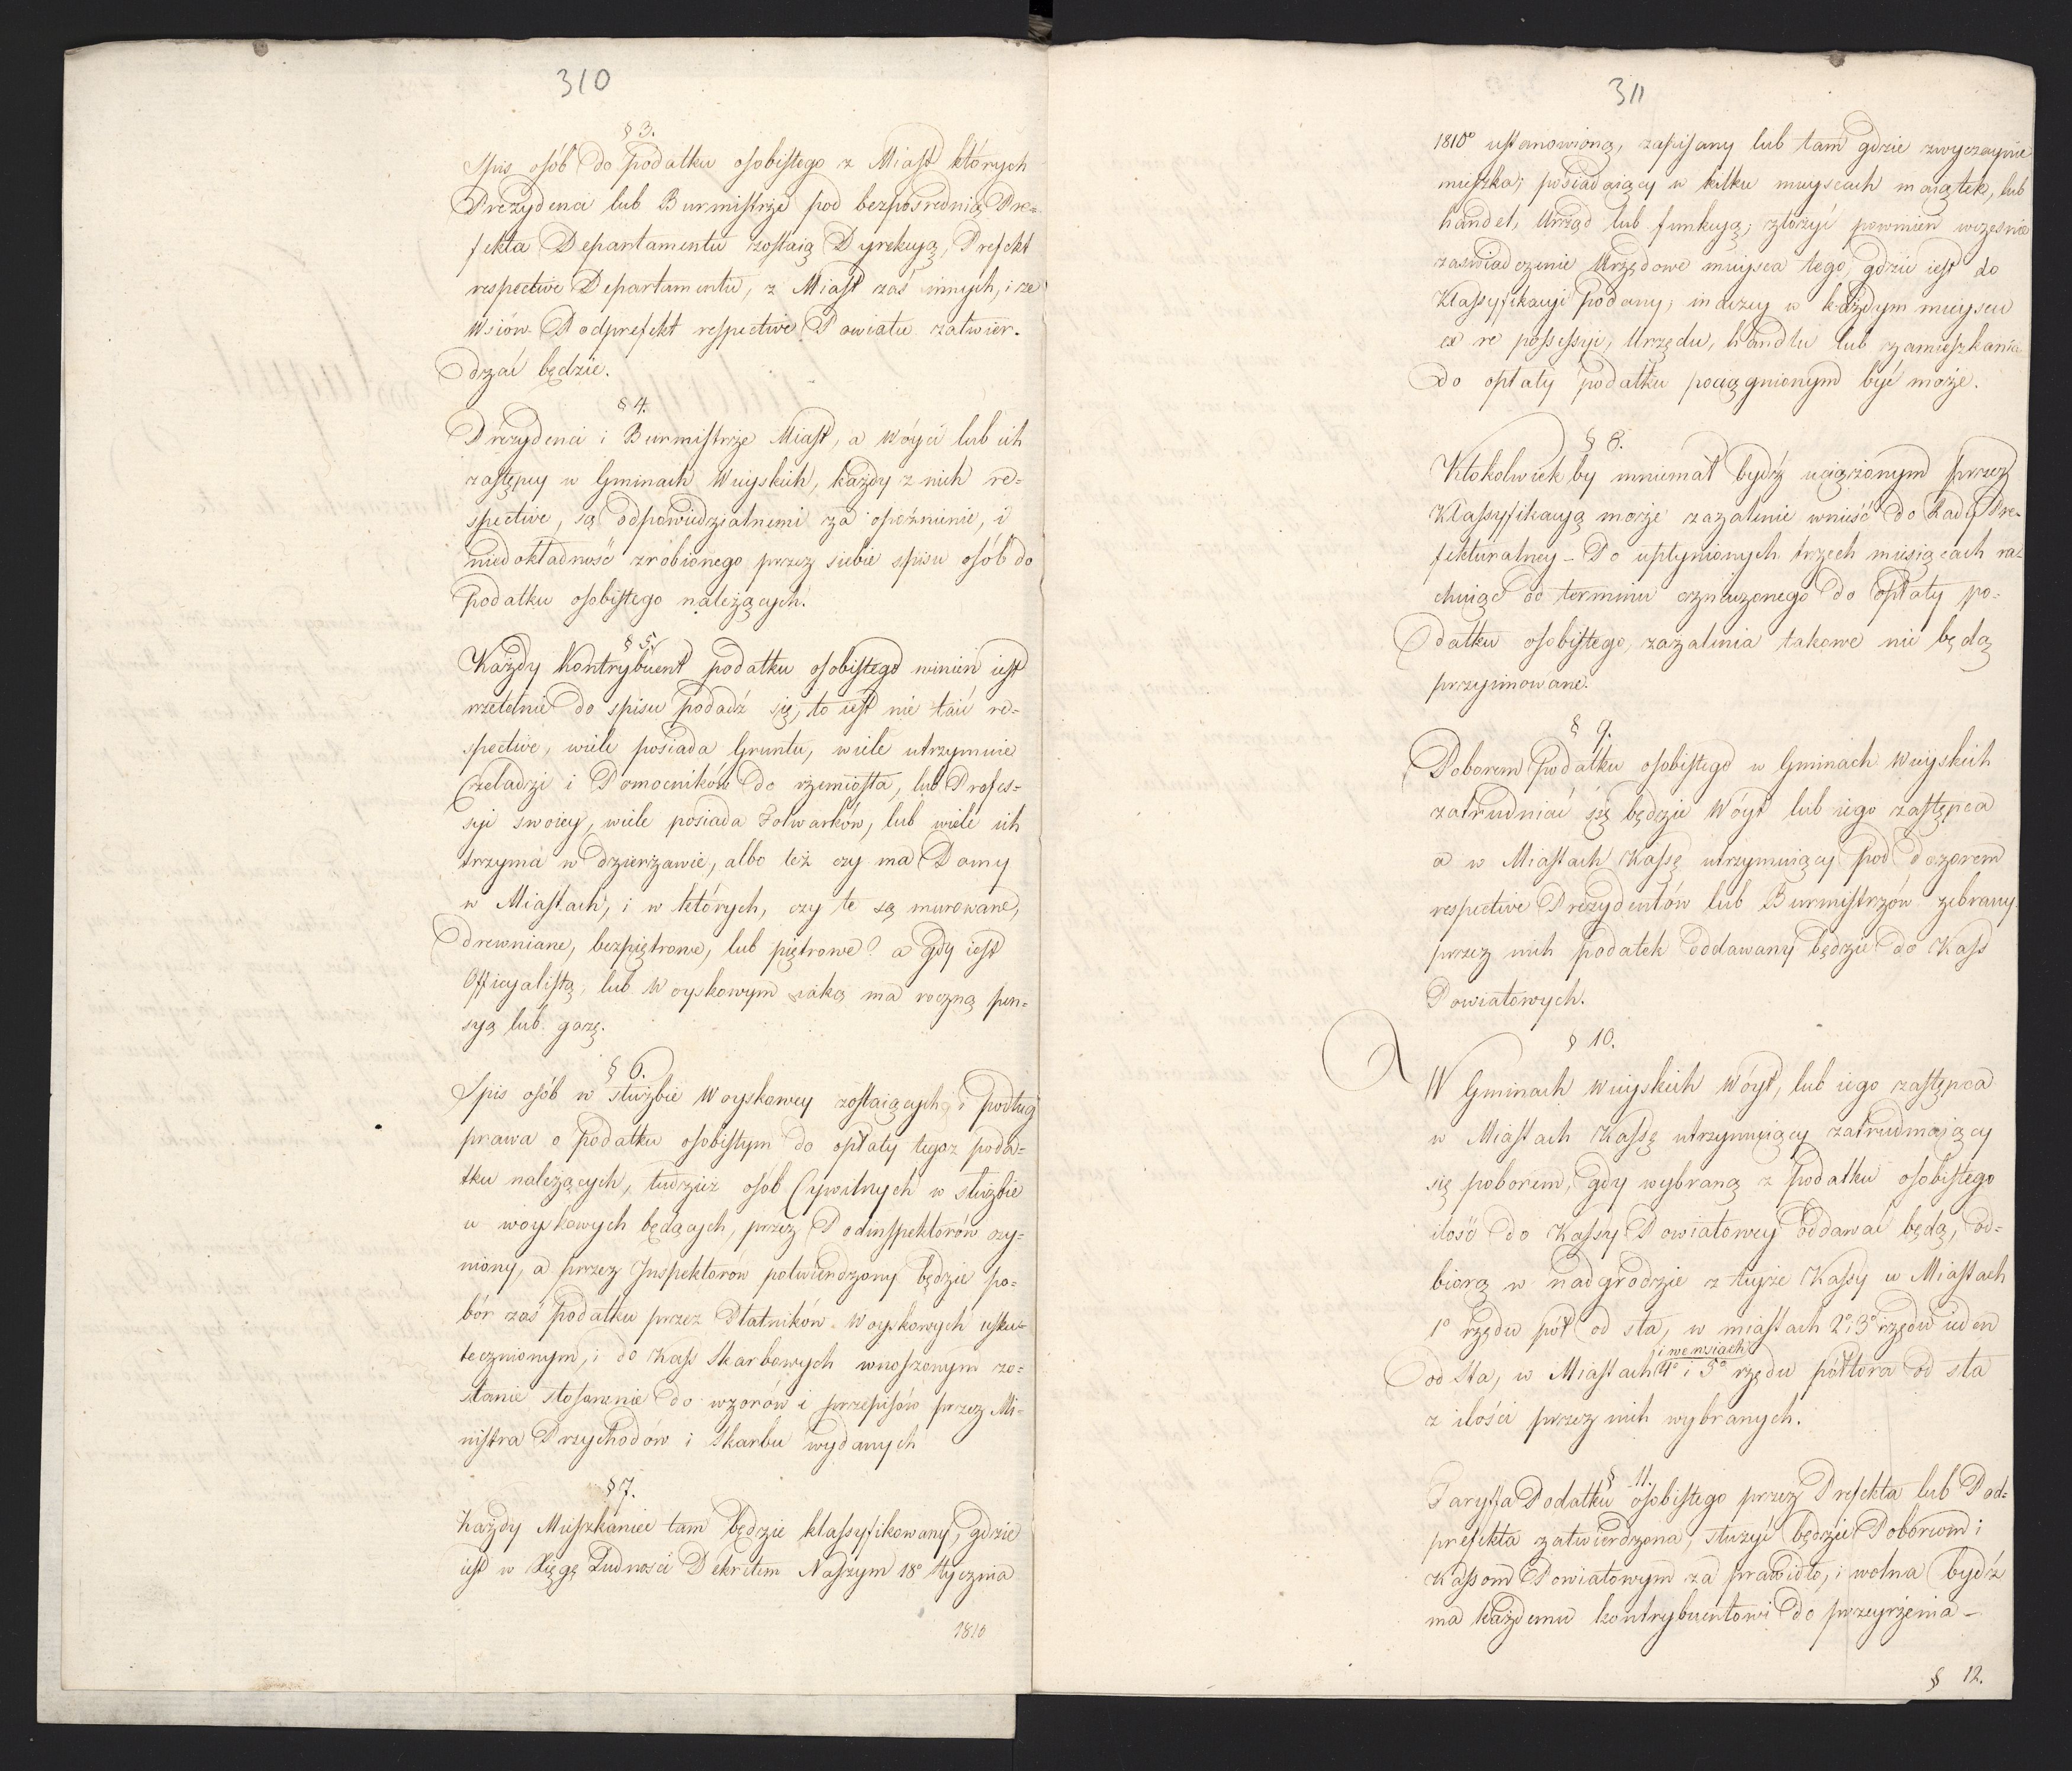 310
§ 3.
Spis osób do podatku osobistego z Miast których
Prezydenci lub Burmistrze pod bezpośrednią Pre=
fekta Departamentu zostaią Dyrekcyą, Prefekt
respective Departamentu, z Miast zaś innych, i ze
Wsiów Podprefekt respective Powiatu zatwier.
dzać będzie.
§ 4.
Prezydenci i Burmistrze Miast, a Wóyci lub ich
zastępcy w Gminach Wieyskich, każdy z nich re=
spective, są odpowiedzialnemi za opóźnienie, i
niedokładność zrobionego przez siebie spisu osób do
podatku osobistego należących.
§ 5.
Każdy Kontrybuent podatku osobistego winien iest
rzetelnie do spisu podadź się, to iest nie taić re=
spective, wiele posiada Gruntu, wiele utrzymuie
Czeladzi i Pomocników do rzemiosła, lub Profes=
syi swoiey, wiele posiada Folwarków, lub wiele ich
trzyma w dzierżawie, albo też czy ma Domy
w Miastach, i w których, czy te są murowane,
drewniane, bezpiętrowe, lub piętrowe? a gdy iest
Officyalistą, lub Woyskowym iaką ma roczną pen=
syą lub gażę.
§ 6.
Spis osób w służbie Woyskowey zostaiących i podług
prawa o podatku osobistym do opłaty tegoż poda=
tku należących, tudzież osób Cywilnych w służbie
u woyskowych będących, przez Podinspektorów czy=
niony, a przez Inspektorów potwierdzony będzie po=
bór zaś podatku przez Płatników Woyskowych usku=
tecznionym, i do Kass Skarbowych wnoszonym zo=
stanie stosownie do wzorów i przepisów przez Mi=
nistra Przychodów i Skarbu wydanych
§ 7.
Każdy Mieszkaniec tam będzie klassyfikowany, gdzie
iest w Xięgę Ludności Dekretem Naszym 18° Stycznia
1810
311
1810° ustanowioną, zapisany lub tam gdzie zwyczaynie
mieszka; posiadaiący w kilku mieyscach maiątek, lub
handel, Urząd lub funkcyą, złożyć powinien wcześnie
zaświadczenie Urzędowe mieysca tego, gdzie iest do
Klassyfikacyi podany, inaczey w każdym mieyscu
ex re possessyi, Urzędu, handlu lub zamieszkania
do opłaty podatku pociągnionym być może.
§ 8.
Ktokolwiek by mniemał bydź uciążonym przez
Klassyfikacyą może zażalenie wnieść do Rady Pre=
fekturalney _ Po upłynionych trzech miesiącach ra=
chuiąc od terminu oznaczonego do opłaty po=
datku osobistego, zażalenia takowe nie będą
przyimowane.
§ 9.
Poborem podatku osobistego w Gminach Wieyskich
zatrudniać się będzie Wóyt lub iego zastępca
a w Miastach Kassę utrzymuiący pod dozorem
respective Prezydentów lub Burmistrzów zebrany
przez nich podatek oddawany będzie do Kass
Powiatowych.
§ 10.
W Gminach Wieyskich Wóyt, lub iego zastępca
w Miastach Kassę utrzymuiący zatrudniaiący
się poborem, gdy wybraną z podatku osobistego
ilość do Kassy Powiatowey oddawać będą, od=
biorą w nadgrodzie z teyże Kassy w Miastach
1° rzędu pół od sta, w miastach 2° i 3° rzędu ieden
i we wsiach
od sta, w Miastach 4° i 5° rzędu półtora od sta
z ilości przez nich wybranych.
§ 11.
Taryffa Podatku osobistego przez Prefekta lub Pod=
prefekta zatwierdzona, służyć będzie Poborcom i
Kassom Powiatowym za prawidło, i wolna bydź
ma każdemu kontrybuentowi do przeyrzenia _
§ 12.